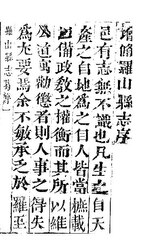 脩羅山縣志序
邑有志無不識也凡生之自天
產之自地爲之自人皆當載
以備政教之權衡而其所以維
道寓勸懲者則人事之得失
爲尤要焉余不敏承乏於羅至
羅山縣志